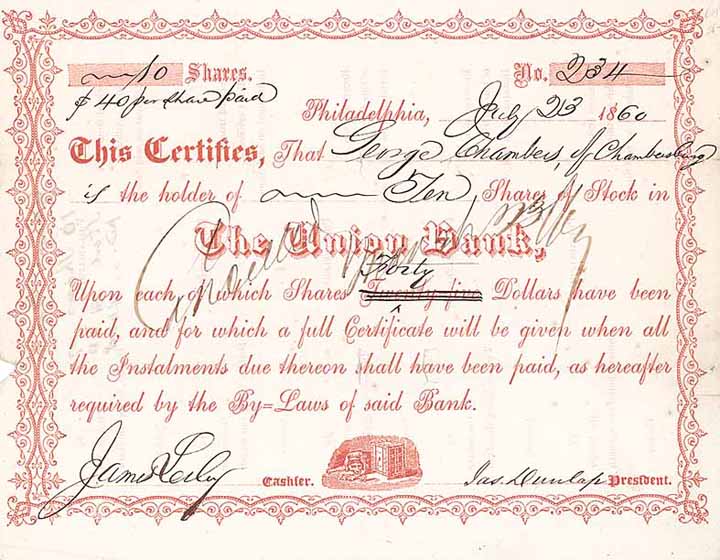 10 Shares. No. 234
$40 per share paid
Philadelphia, July 23 1860
This Certifies, That George Chambers, of Chambersburg
is the holder of Ten Shares of Stock in
The Union Bank,
Forty
Upon each of which Shares Twenty five Dollars have been
paid, and for which a full Certificate will be given when all
the Instalments due thereon shall have been paid, as hereafter
required by the By=Laws of said Bank.
James Cashier. Jas. Dunlap President.